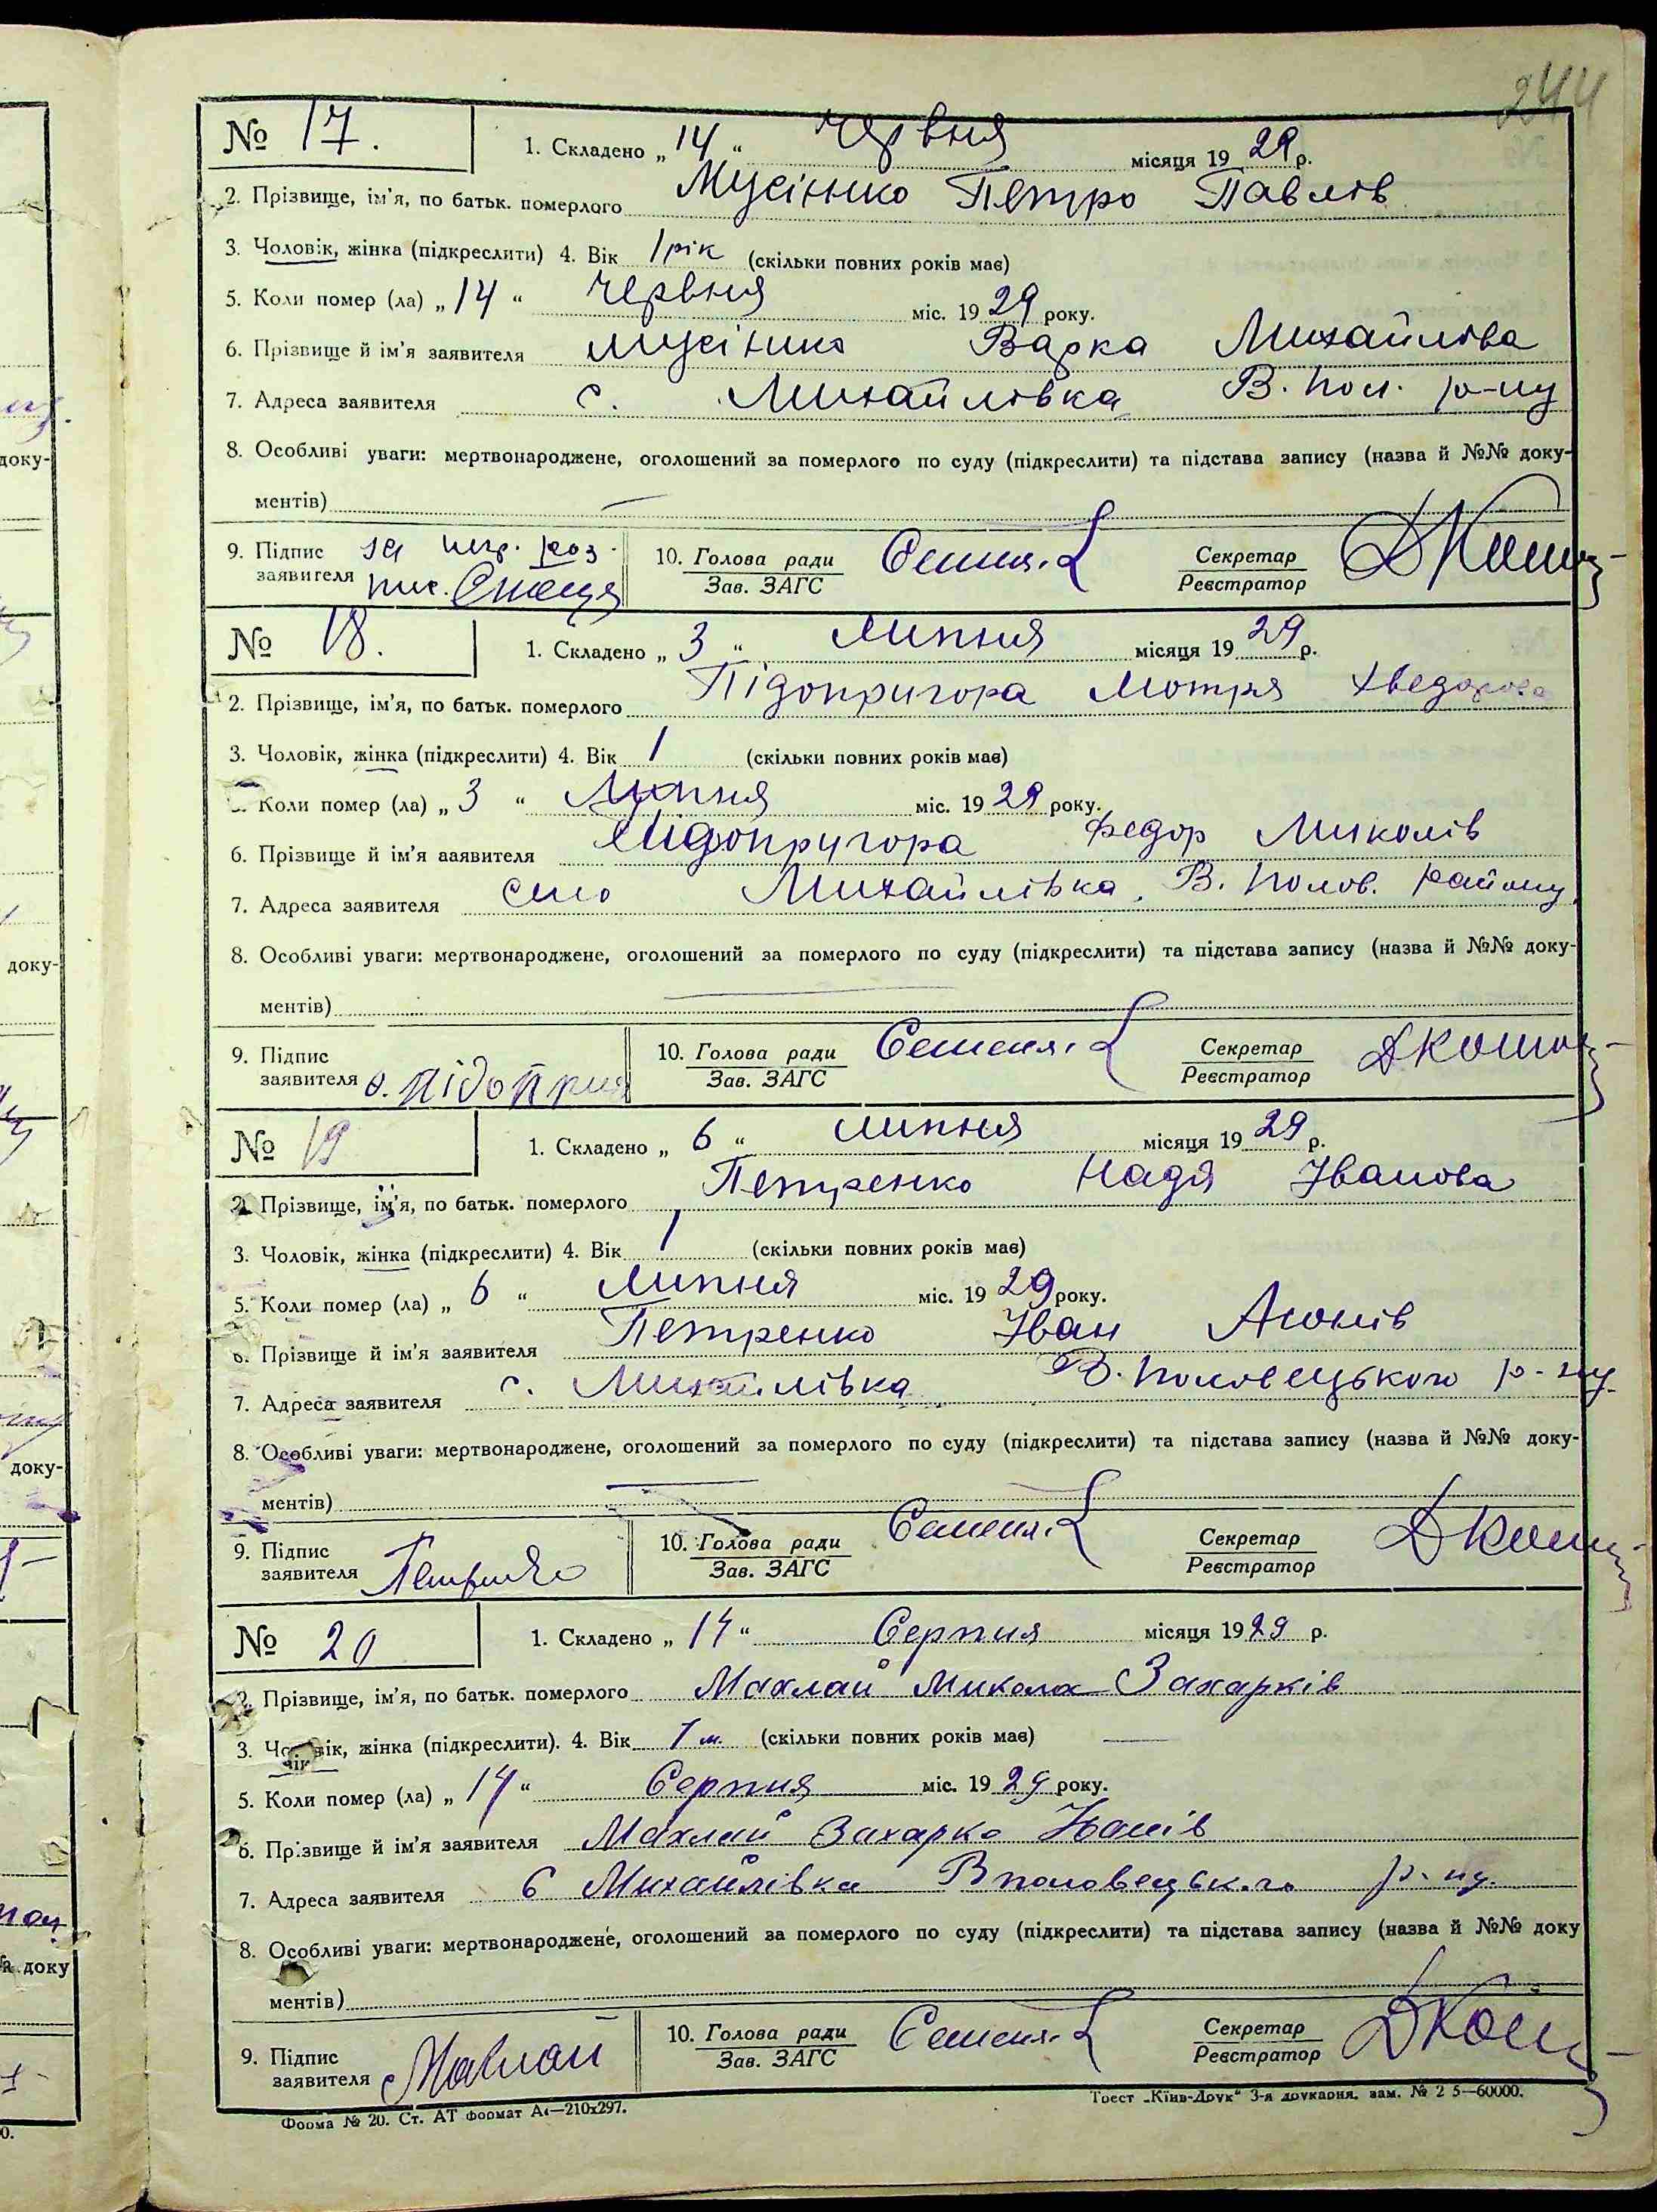 244
№ 17. 1. Складено „ 14 “ червня місяця 19 29 р.
2. Прізвище, ім'я, по батьк. померлого Мусієнко Петро Павлів
3. Чоловік, жінка (підкреслити) 4. Вік 1 рік (скільки повних років має)
5. Коли помер (ла) „ 14 “ червня міс. 19 29 року.
6. Прізвище й ім'я заявителя Мусієнко Варка Михайлова
7. Адреса заявителя с. Михайлівка В. Пол. р-ну
8. Особливі уваги: мертвонароджене, оголошений за померлого по суду (підкреслити) та підстава запису (назва й №№ доку-
ментів)
9. Підпис заявителя за
10. Голова ради Зав. ЗАГС Семен. Секретар Реєстратор
№ 18. 1. Складено „ 3 “ липня місяця 19 29 р.
2. Прізвище, ім'я, по батьк. померлого Підопригора Мотря Хведорова
3. Чоловік, жінка (підкреслити) 4. Вік 1 (скільки повних років має)
Коли помер (ла) „ 3 “ липня міс. 19 29 року.
6. Прізвище й ім'я ааявителя Підопригора Федор Миколів
7. Адреса заявителя село Михайлівка, В. Полов. району
8. Особливі уваги: мертвонароджене, оголошений за померлого по суду (підкреслити) та підстава запису (назва й №№ доку-
ментів)
9. Підпис заявителя
10. Голова ради Зав. ЗАГС Семен. Секретар Реєстратор
№ 19 1. Складено „ 6 “ липня місяця 19 29 р.
2. Прізвище, ім'я, по батьк. померлого Петренко Надя Іванова
3. Чоловік, жінка (підкреслити) 4. Вік 1 (скільки повних років має)
5. Коли помер (ла) „ 6 “ липня міс. 19 29 року.
6. Прізвище й ім'я заявителя Петренко Іван
7. Адреса заявителя с. Михайлівка В. Половецького р-ну
8. Особливі уваги: мертвонароджене, оголошений за померлого по суду (підкреслити) та підстава запису (назва й №№ доку-
ментів)
9. Підпис заявителя Петренко
10. Голова ради Зав. ЗАГС Семен. Секретар Реєстратор
№ 20 1. Складено „ 14 “ Серпня місяця 19 29 р.
2. Прізвище, ім'я, по батьк. померлого Махлай Микола Захарків
3. Чоловік, жінка (підкреслити). 4. Вік 1 м. (скільки повних років має)
5. Коли помер (ла) „ 14 “ Серпня міс. 19 29 року.
6. Прізвище й ім'я заявителя Махлай Захарко
7. Адреса заявителя с Михайлівка В половецького р-ну.
8. Особливі уваги: мертвонароджене, оголошений за померлого по суду (підкреслити) та підстава запису (назва й №№ доку
ментів)
9. Підпис заявителя Махлай
10. Голова ради Зав. ЗАГС Семен. Секретар Реєстратор
Форма № 20. Ст. АТ формат А4—210x297. Трест „Київ-Друк“ 3-я друкарня. зам. № 2 5—60000.